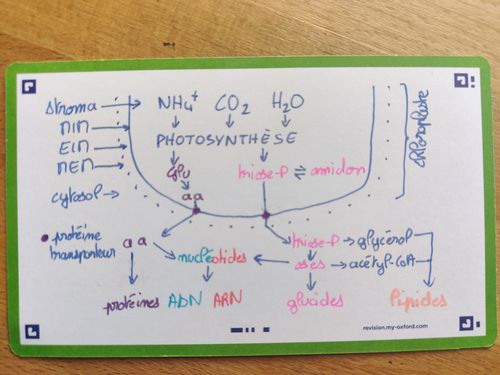 stroma → NH4+ CO2 H2O
MIM →
EIM → PHOTOSYNTHÈSE
MEM → glu triose-P ⇌ amidon
cytosol → aa
chloroplaste
• protéine transporteur
aa → nucléotides
triose-P → glycérol
oses → acétyl-CoA
protéines ADN ARN glucides lipides
revision.my-oxford.com